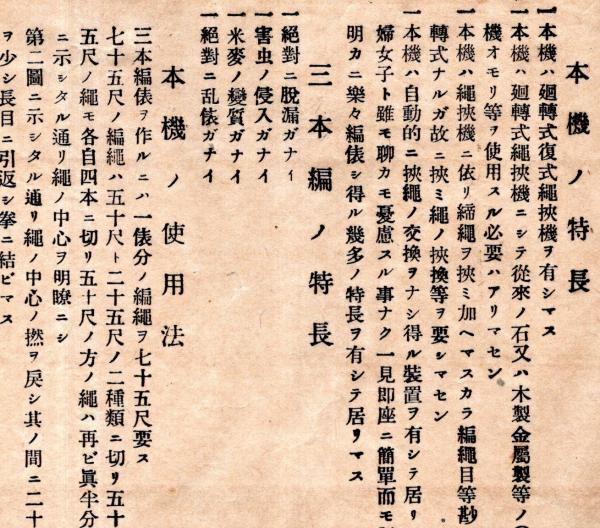 本機ノ特長
一本機ハ廻轉式復式繩挾機ヲ有シマス
一本機ハ廻轉式繩挾機ニシテ從來ノ石又ハ木製金屬製等ノ
機オモリ等ヲ使用スル必要ハアリマセン
一本機ハ繩挾機ニ依リ締繩ヲ挾ミ加ヘマスカラ編繩目等
轉式ナルガ故ニ挾ミ繩ノ挾換等ヲ要シマセン
一本機ハ自動的ニ挾繩ノ交換ヲナシ得ル裝置ヲ有シテ居リ
婦女子ト雖モ聊カモ憂慮スル事ナク一見即座ニ簡單而モ
明カニ樂々編俵シ得ル幾多ノ特長ヲ有シテ居リマス
三本編ノ特長
一絕對ニ脫漏ガナイ
一害虫ノ侵入ガナイ
一米麥ノ變質ガナイ
一絕對ニ乱俵ガナイ
本機ノ使用法
三本編俵ヲ作ルニハ一俵分ノ編繩ヲ七十五尺要ス
七十五尺ノ編繩ハ五十尺ト二十五尺ノ二種類ニ切リ五十
五尺ノ繩モ各自四本ニ切リ五十尺ノ方ノ繩ハ再ビ眞半分
ニ示シタル通リ繩ノ中心ヲ明瞭ニシ
第二圖ニ示シタル通リ繩ノ中心ノ撚ヲ戾シ其ノ間ニ二十
ヲ少シ長目ニ引返シ拳ニ結ビマス